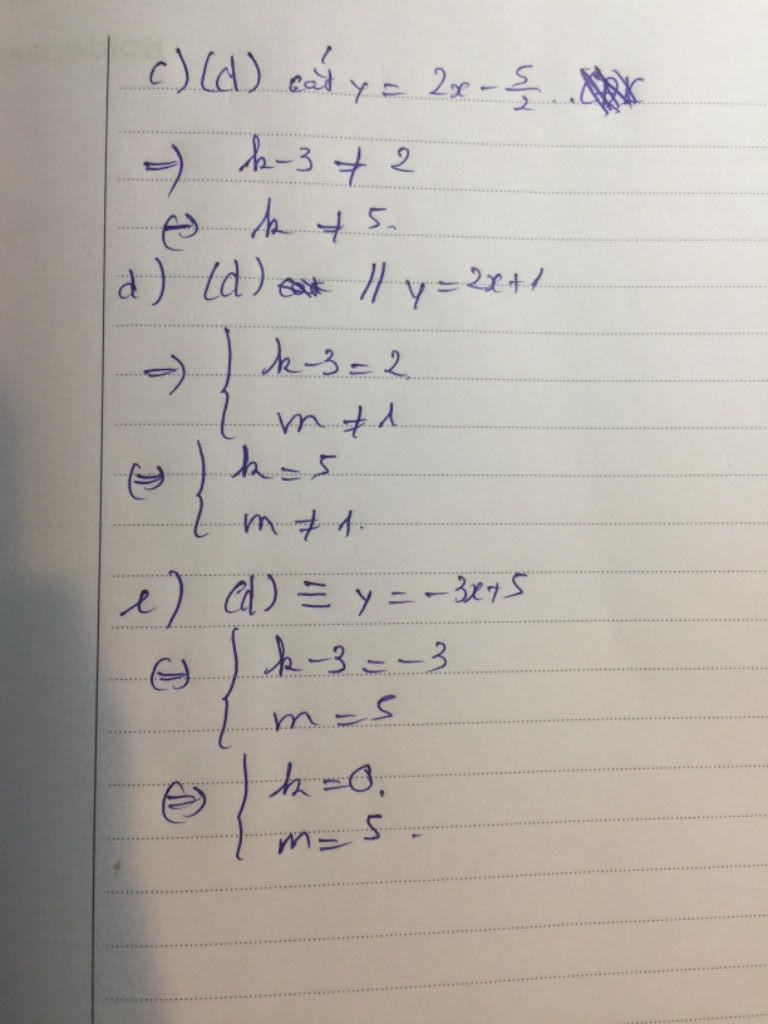 c) (d) cắt y = 2x - 5/2
=> k-3 ≠ 2
<=> k ≠ 5.
d) (d) // y = 2x+1
=> { k-3 = 2
m ≠ 1
<=> { k = 5
m ≠ 1.
e) (d) ≡ y = -3x+5
<=> { k-3 = -3
m = 5
<=> { k = 0.
m = 5.